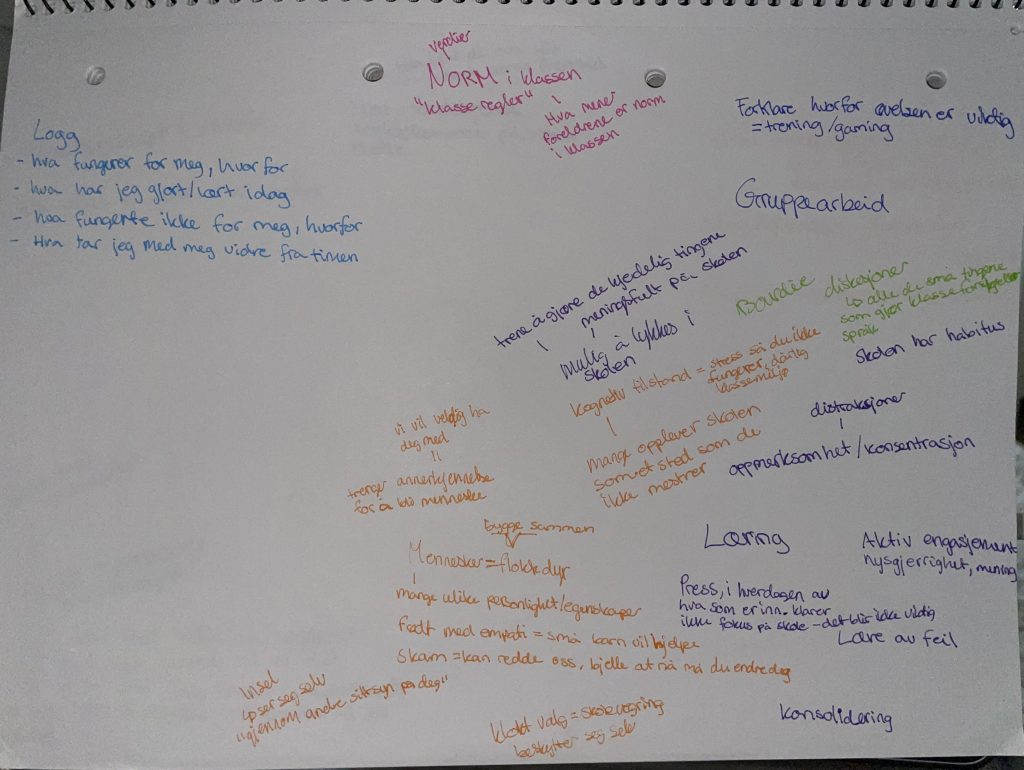 verdier
NORM i klassen
"klasse regler"
Hva mener
foreldrene er norm
i klassen
Forklare hvorfor øvelsen er viktig
= trening/gaming
Logg
- hva fungerer for meg, hvorfor
- hva har jeg gjort/lært idag
- hva fungerte ikke for meg, hvorfor
- Hva tar jeg med meg vidre fra timen
Gruppearbeid
trene å gjøre de kjedelig tingene
meningsfult på skolen
mulig å lykkes i
skolen
Bourdieu
diskusjoner
↳ alle de små tingene
som gjør klasseforskjellen
språk
Skolen har habitus
kognetiv tilstand = stress så du ikke
fungerer, dårlig
klassemiljø
mange opplever skolen
som et sted som de
ikke mestrer
distraksjoner
oppmerksomhet/konsentrasjon
vi vil veldig ha
deg med
trenger annerkjennelse
for å bli menneske
bygge sammen
Mennesker = flokkdyr
mange ulike personlighet/egenskaper
født med empati = små barn vil hjelpe
Skam = kan redde oss, bjelle at nå må du endre deg
Læring
Aktiv engasjement
nysgjerrighet, mening
Press, i hverdagen av
hva som er inn. klarer
ikke fokus på skole - det blir ikke viktig
Lære av feil
Insel
↳ ser seg selv
"gjennom andre sitt syn på deg"
klokt valg = skolevegring
beskytter seg selv
Konsolidering